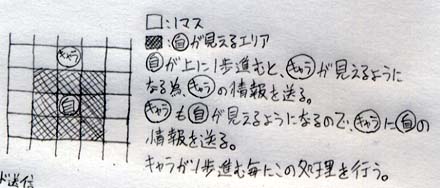 □:1マス
▨:自が見えるエリア
キャラ
自が上に1歩進むと、キャラが見えるように
なる為、キャラの情報を送る。
自
キャラも自が見えるようになるので、キャラに自の
情報を送る。
キャラが1歩進む毎にこの処理を行う。
ド送信